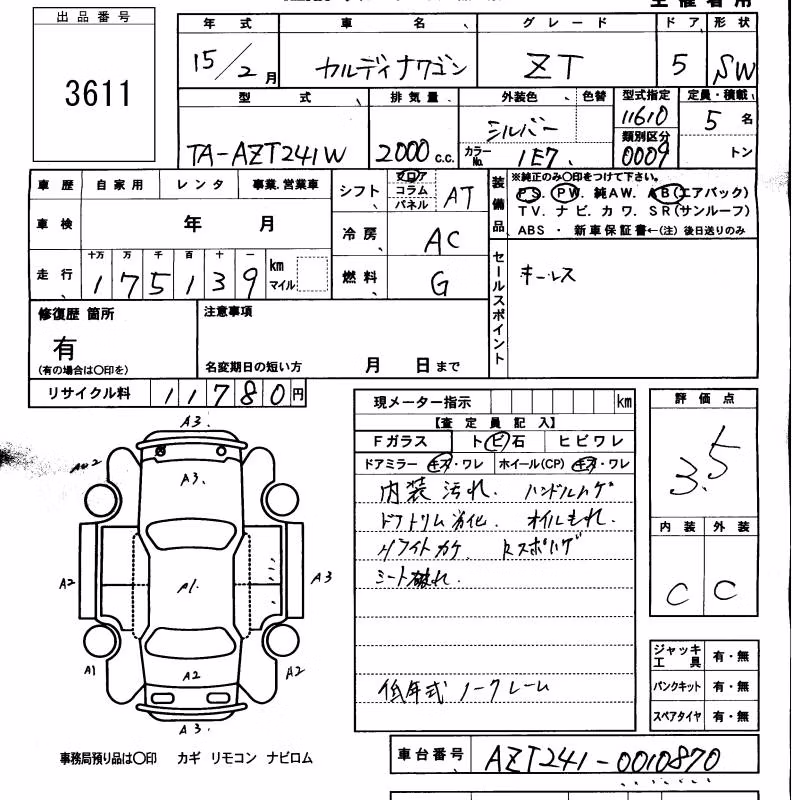 出品番号
3611
年式 車名 グレード ドア 形状
15/2月 カルディナワゴン ZT 5 SW
型式 排気量 外装色 色替 型式指定 定員・積載
TA-AZT241W 2000c.c. シルバー 11610 5名
カラーNo. 1E7 類別区分 0009 トン
車歴 自家用 レンタ 事業.営業車
シフト フロア コラム パネル AT
装備品 ※純正のみ〇印をつけて下さい。
PS. PW. 純AW. AB(エアバック)
TV. ナビ. カワ. SR(サンルーフ)
ABS ・ 新車保証書←(注) 後日送りのみ
車検 年 月
冷房 AC
走行 十万 万 千 百 十 一
175139 km マイル
燃料 G
セールスポイント キーレス
修復歴 箇所
有
(有の場合は〇印を)
注意事項
名変期日の短い方 月 日まで
リサイクル料 11780円
現メーター指示 km
【査定員記入】
Fガラス トビ石 ヒビワレ
ドアミラー キズ・ワレ ホイール(CP) キズ・ワレ
内装汚れ. ハンドルハゲ
ドアトリム劣化. オイルもれ.
Hライトカケ. Rスポハゲ
シート破れ.
低年式 ノークレーム
評価点
3.5
内装 外装
C C
ジャッキ工具 有・無
パンクキット 有・無
スペアタイヤ 有・無
A3.
A3.
A2
A1.
A3
A1
A2
A2
A3.
事務局預り品は〇印 カギ リモコン ナビロム
車台番号 AZT241-0010870